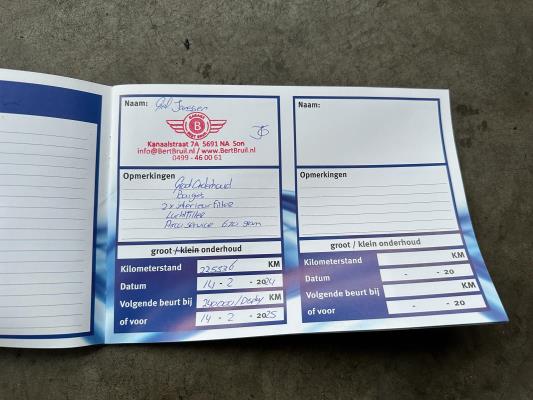 Naam:
GARAGE
B
BERT BRUIL
Kanaalstraat 7A 5691 NA Son
info@BertBruil.nl / www.BertBruil.nl
0499 - 46 00 61
Opmerkingen
Groot Onderhoud
Bougies
2x interieurfilter
Luchtfilter
Airco service 670 gram
groot / klein onderhoud
Kilometerstand 225536 KM
Datum 14 - 2 - 2024
Volgende beurt bij 240000 / KM
of voor 14 - 2 - 2025
Naam:
Opmerkingen
groot / klein onderhoud
Kilometerstand KM
Datum - - 20
Volgende beurt bij KM
of voor - - 20